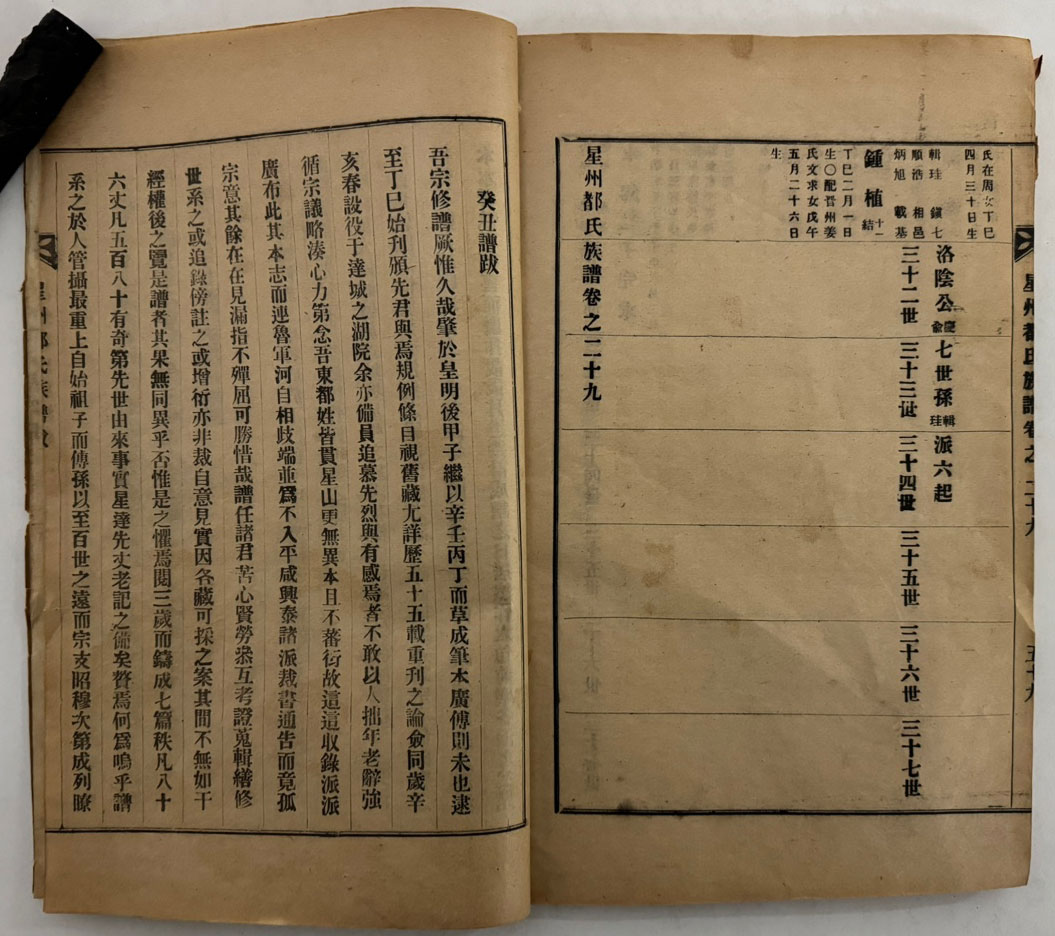 氏在周女丁巳
四月三十日生
輯珪 鎭七
順浩 相邑
炳旭 載基
鍾植 十一結
丁巳二月一日
生〇配晋州姜
氏文求女戊午
五月二十六日
生
洛陰公慶兪七世孫輯珪派六起
三十二世 三十三世 三十四世 三十五世 三十六世 三十七世
星州都氏族譜卷之二十九
星州都氏族譜卷之二十九 五十九
癸丑譜跋
吾宗修譜厥惟久哉肇於皇明後甲子繼以辛壬丙丁而草成筆本廣傅則未也逮
至丁巳始刋頒先君與焉規例條目視舊藏尤詳歷五十五載重刋之論僉同歲辛
亥春設役于達城之湖院余亦備員追慕先烈與有感焉者不敢以人拙年老辭強
循宗議略湊心力第念吾東都姓皆貫星山更無異本且不蕃衍故這這收錄派派
廣布此其本志而連魯軍河自相歧端並爲不入平咸興泰諸派裁書通告而竟孤
宗意其餘在在見漏指不殫屈可勝惜哉譜任諸君苦心賢勞叅互考證蒐輯繕修
世系之或追錄傍註之或增衍亦非裁自意見實因各藏可採之案其間不無如干
經權後之覽是譜者其果無同異乎否惟是之懼焉閱三歲而鑄成七篇秩凡八十
六丈凡五百八十有奇第先世由來事實星達先丈老記之備矣贅焉何爲嗚乎譜
系之於人管攝最重上自始祖子而傳孫以至百世之遠而宗支昭穆次第成列瞭
星州都氏族譜